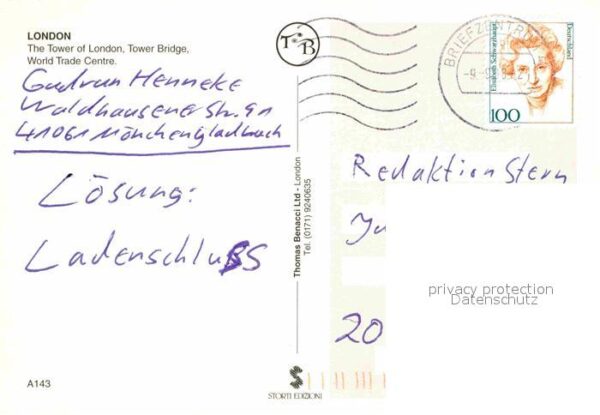 LONDON
The Tower of London, Tower Bridge,
World Trade Centre.
Gudrun Henneke
Waldhausener Str. 91
41061 Mönchengladbach
Lösung:
Ladenschluss
A143
TB
Thomas Benacci Ltd - London
Tel. (0171) 9240635
STORTI EDIZIONI
BRIEFZENTRUM
Elisabeth Schwarzhaupt
Deutschland
100
Redaktion Stern
20
privacy protection
Datenschutz